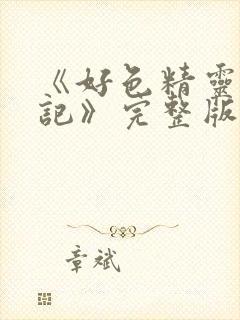 《好色精靈
記》完整版
章斌